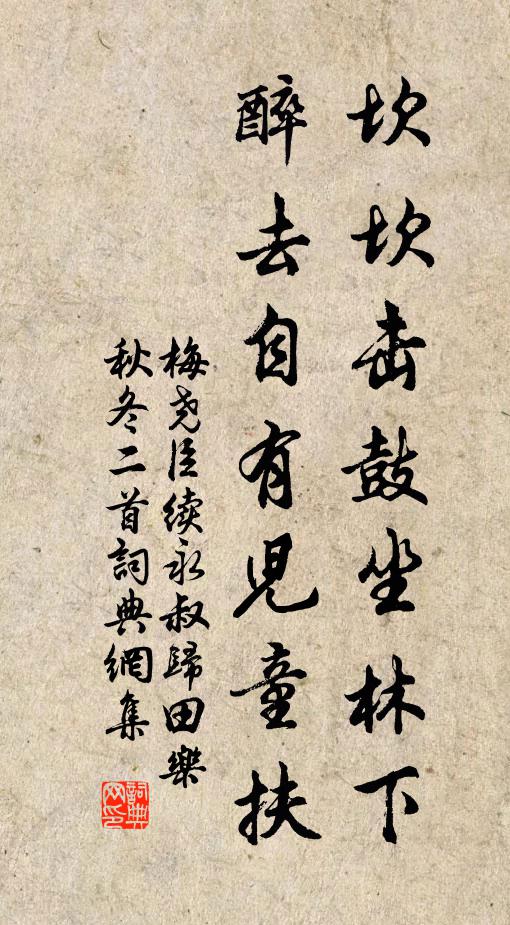 坎坎击鼓坐林下
醉去自有児童扶
梅尧臣续永叔歸田樂
秋冬二首詞典網集
詞典网印